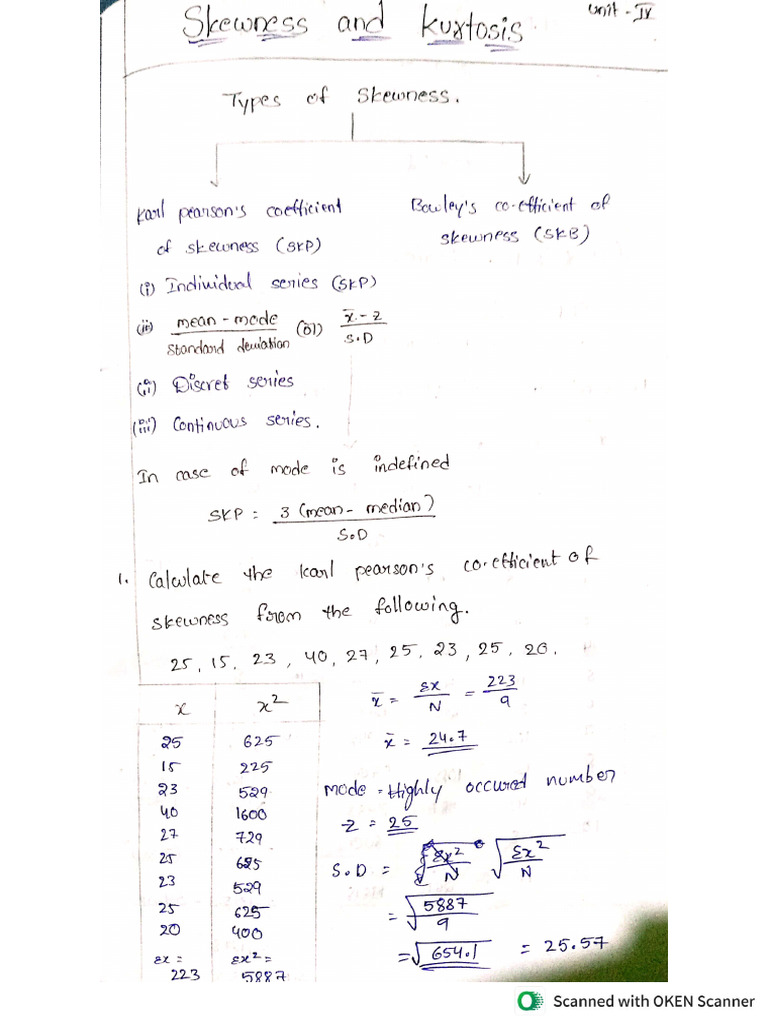 Unit - IV
Skewness and Kurtosis
Types of Skewness.
Karl pearson's coefficient
of skewness (SKP)
Bowley's co-efficient of
skewness (SKB)
(i) Individual series (SKP)
(ii) mean - mode / Standard deviation (or) x̄ - z / S.D
(ii) Discret series
(iii) Continuous series.
In case of mode is indefined
SKP = 3 (mean - median) / S.D
1. Calculate the karl pearson's co-efficient of
skewness from the following.
25, 15, 23, 40, 27, 25, 23, 25, 20.
x x²
25 625
15 225
23 529
40 1600
27 729
25 625
23 529
25 625
20 400
Σx = 223 Σx² = 5887
x̄ = Σx / N = 223 / 9
x̄ = 24.7
Mode = Highly occured number
z = 25
S.D = √Σx² / N √Σx² / N
= √5887 / 9
= √654.1 = 25.57
Scanned with OKEN Scanner